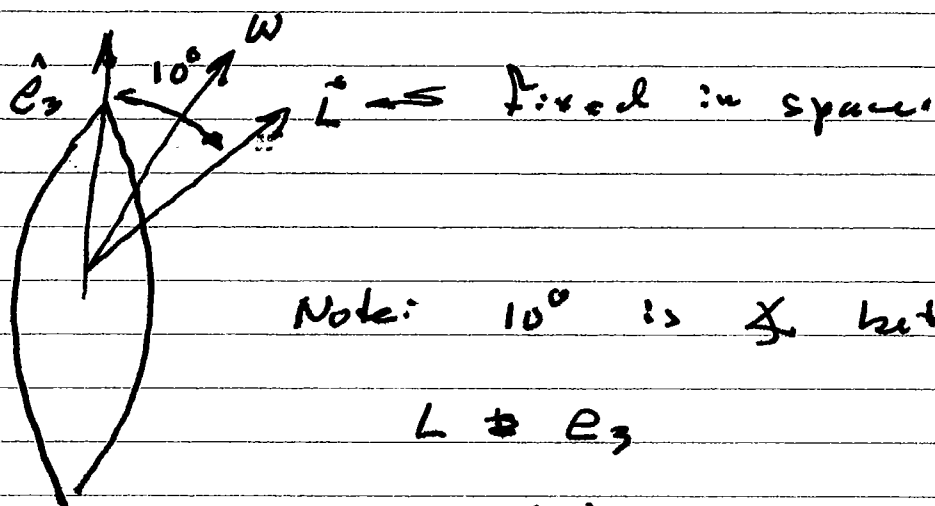 ω
10°
ê₃
L⃗ ← fixed in space.
Note: 10° is ∡ bet
L & e₃